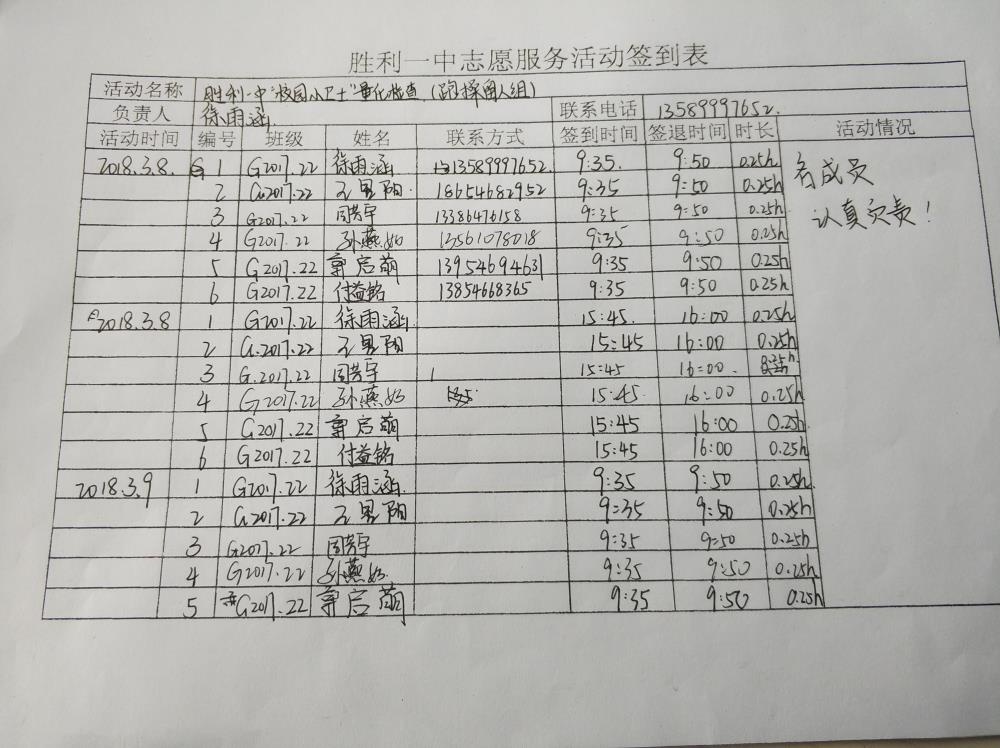 胜利一中志愿服务活动签到表
活动名称 胜利一中"校园小卫士"量化检查(跑操留人组)
负责人 徐雨涵 联系电话 13589997652
活动时间 编号 班级 姓名 联系方式 签到时间 签退时间 时长 活动情况
2018.3.8. 1 G2017.22 徐雨涵 13589997652 9:35. 9:50 0.25h 各成员
2 G2017.22 阳 18654682952 9:35 9:50 0.25h
3 G2017.22 周芳宇 13386476158 9:35 9:50 0.25h 认真负责!
4 G2017.22 孙燕妮 13561078018 9:35 9:50 0.25h
5 G2017.22 启萌 13954694631 9:35 9:50 0.25h
6 G2017.22 付益铭 13854668365 9:35 9:50 0.25h
2018.3.8 1 G2017.22 徐雨涵 15:45. 16:00 0.25h
2 G.2017.22 阳 15:45 16:00 0.25h
3 G.2017.22 周芳宇 15:45 16:00. 0.25h
4 G2017.22 孙燕妮 15:45 16:00 0.25h
5 G2017.22 启萌 15:45 16:00 0.25h
6 G2017.22 付益铭 15:45 16:00 0.25h
2018.3.9 1 G2017.22 徐雨涵 9:35 9:50 0.25h
2 G2017.22 阳 9:35 9:50 0.25h
3 G2017.22 周芳宇 9:35 9:50 0.25h
4 G2017.22 孙燕妮 9:35 9:50 0.25h
5 G2017.22 启萌 9:35 9:50 0.25h